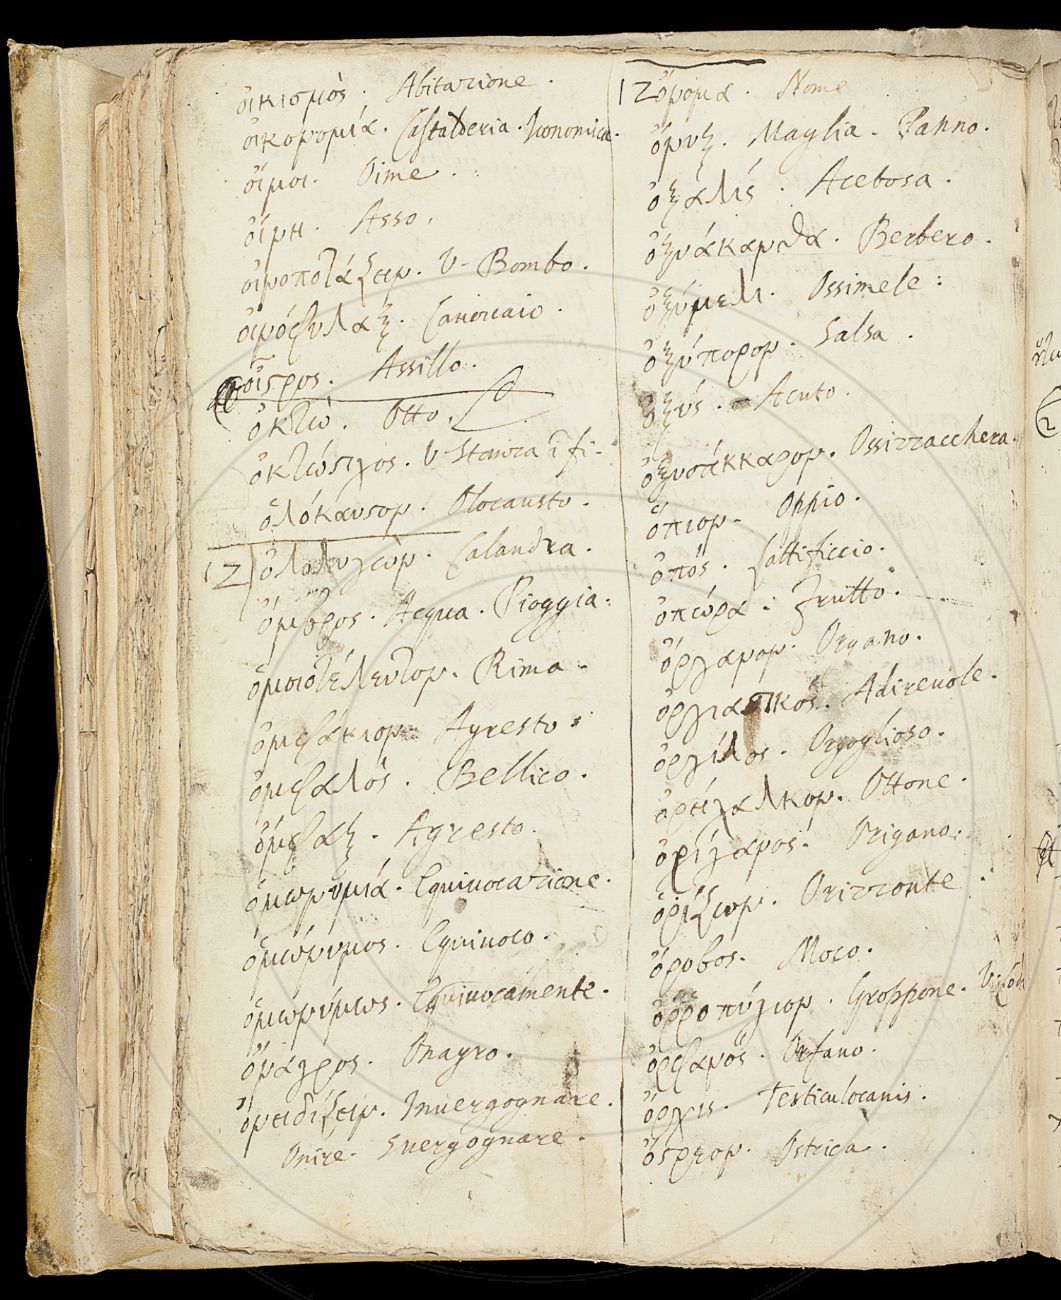 οἰκισμὸς. Abitazione.
οἰκονομιά. Castalderia. Iconomica.
οἴμοι. Oime.
οἴνη. Asso.
οἰνοποτάζειν. V- Bombo.
οἰνόφυλαξ. Canovaio.
οἶςρος. Assillo.
ὀκτώ. Otto.
ὀκτώςιχος. V-Stanza
ὁλόκαυςον. Olocausto.
12 ὀλολυγών. Calandra.
ὄμβρος. Acqua. Pioggia.
ὁμοιοτέλευτον. Rima.
ὀμφάκιον. Agresto.
ὀμφαλός. Bellico.
ὄμφαξ. Agresto.
ὁμωνυμιά. Equivocazione.
ὁμώνυμος. Equivoco.
ὁμωνύμως. Equivocamente.
ὄναγρος. Onagro.
ὀνειδίζειν. Invergognare.
Onire. Svergognare.
12 ὄνομα. Nome
ὄνυξ. Maglia. Panno.
ὀξαλίς. Acetosa.
ὀξυάκανθα. Berbero.
ὀξύμελι. Ossimele:
ὀξύπορον. Salsa.
ὀξύς. Acuto.
ὀξυσάκκαρον. Ossizzacchera.
ὄπιον. Oppio.
ὀπός. Lattificcio.
ὀπώρα: Frutto.
ὄργανον. Organo.
ὀργιαςικός. Adirevole.
ὀργίλος. Orgoglioso.
ὀρείχαλκον. Ottone.
ὀρίγανος. Origano.
ὁρίζων. Orizzonte.
ὄροβος. Moco.
ὀρροπύγιον. Groppone.
ὀρφανός. Orfano.
ὄρχις. Testiculocanis.
ὄςρεον. Ostrica.